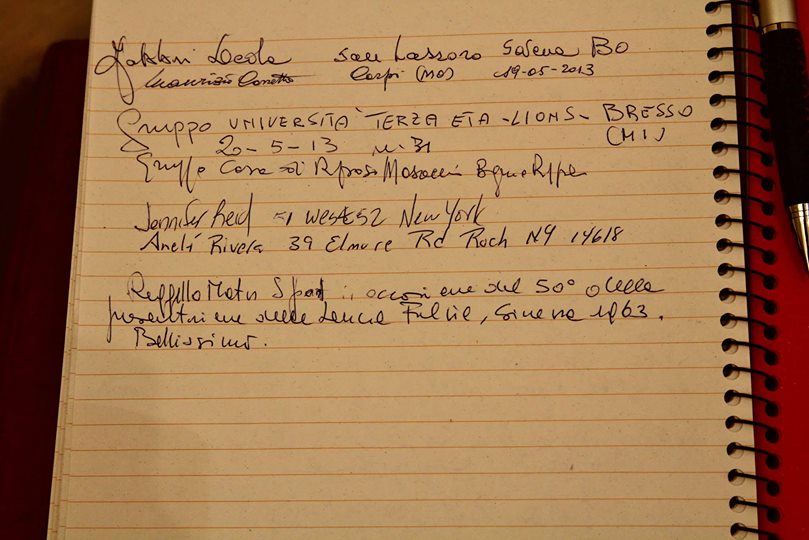 San Lazzaro Savena BO
Maurizio Carpi (MO) 19-05-2013
Gruppo UNIVERSITÀ TERZA ETA - LIONS - BRESSO
20-5-13 n. 31 (MI)
Gruppo Casa di Riposo Masaccio
Jennifer Reid 51 West 52 New York
Rivera 39 Elmore Rd Roch NY 14618
Reggello Motor Sport in occasione del 50° della
presentazione della Lancia Fulvia, Ginevra 1963.
Bellissimo.